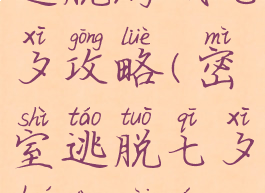 xī gōng lüè mì
夕攻略(密
shì táo tuō qī xī
室逃脱七夕